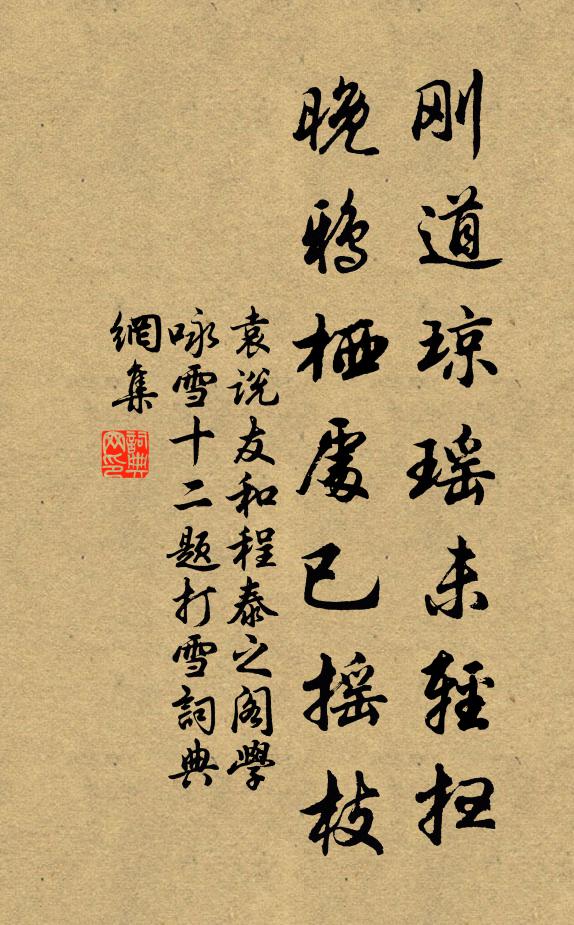 刚道琼瑶未轻扫
晚鸦栖处已摇枝
袁说友和程泰之阁学
咏雪十二题打雪詞典
網集
詞典
网印